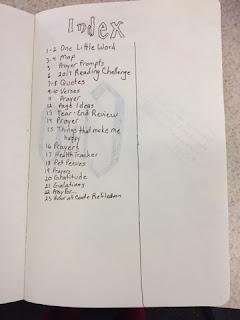 Index
1-2 One Little Word
3-4 Map
5 Prayer Prompts
6 2017 Reading Challenge
7-8 Quotes
9-10 Verses
11 Prayer
12 Page Ideas
13 Year-End Review
14 Prayer
15 Things that make me
happy
16 Prayers
17 Health Tracker
18 Pet Peeves
19 Prayers
20 Gratitude
21
22 Pray for...
23 Hour at Reflection